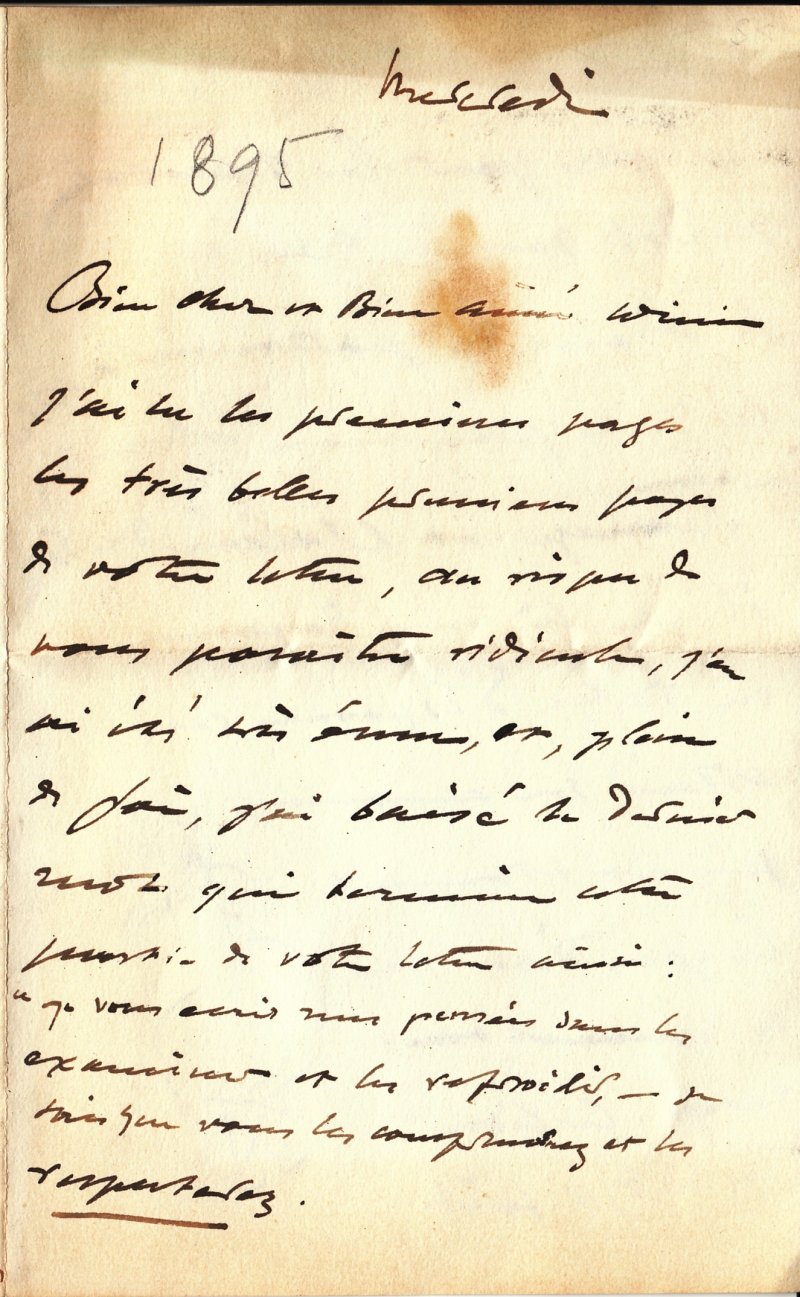 Mercredi
1895
Bien cher et Bien aimé
j'ai lu les premieres pages
les très belles premieres pages
de votre lettre, au risque de
vous paraître ridicule, j'en
ai été très émue, et, plein
de joie, j'ai baisé le dernier
mot qui termine cette
partie de votre lettre ainsi :
"je vous ecris mes pensées sans les
examiner et les refroidir, — je
sais que vous les comprendrez et les
respecterez.